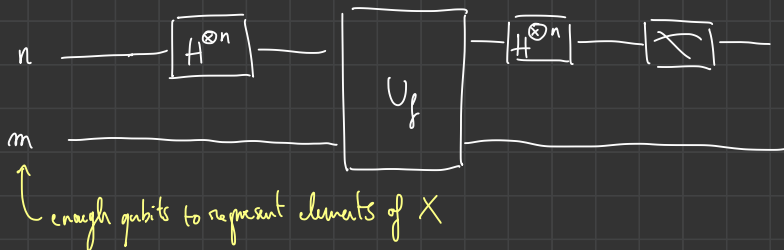 n H^⊗n U_f H^⊗n
m
enough qubits to represent elements of X